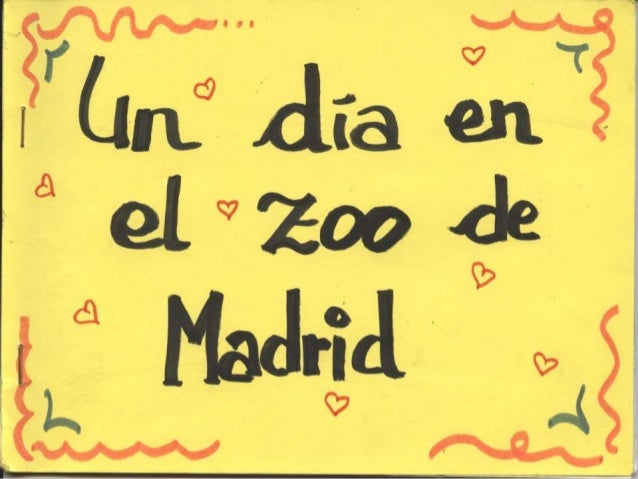 Un día en
el zoo de
Madrid